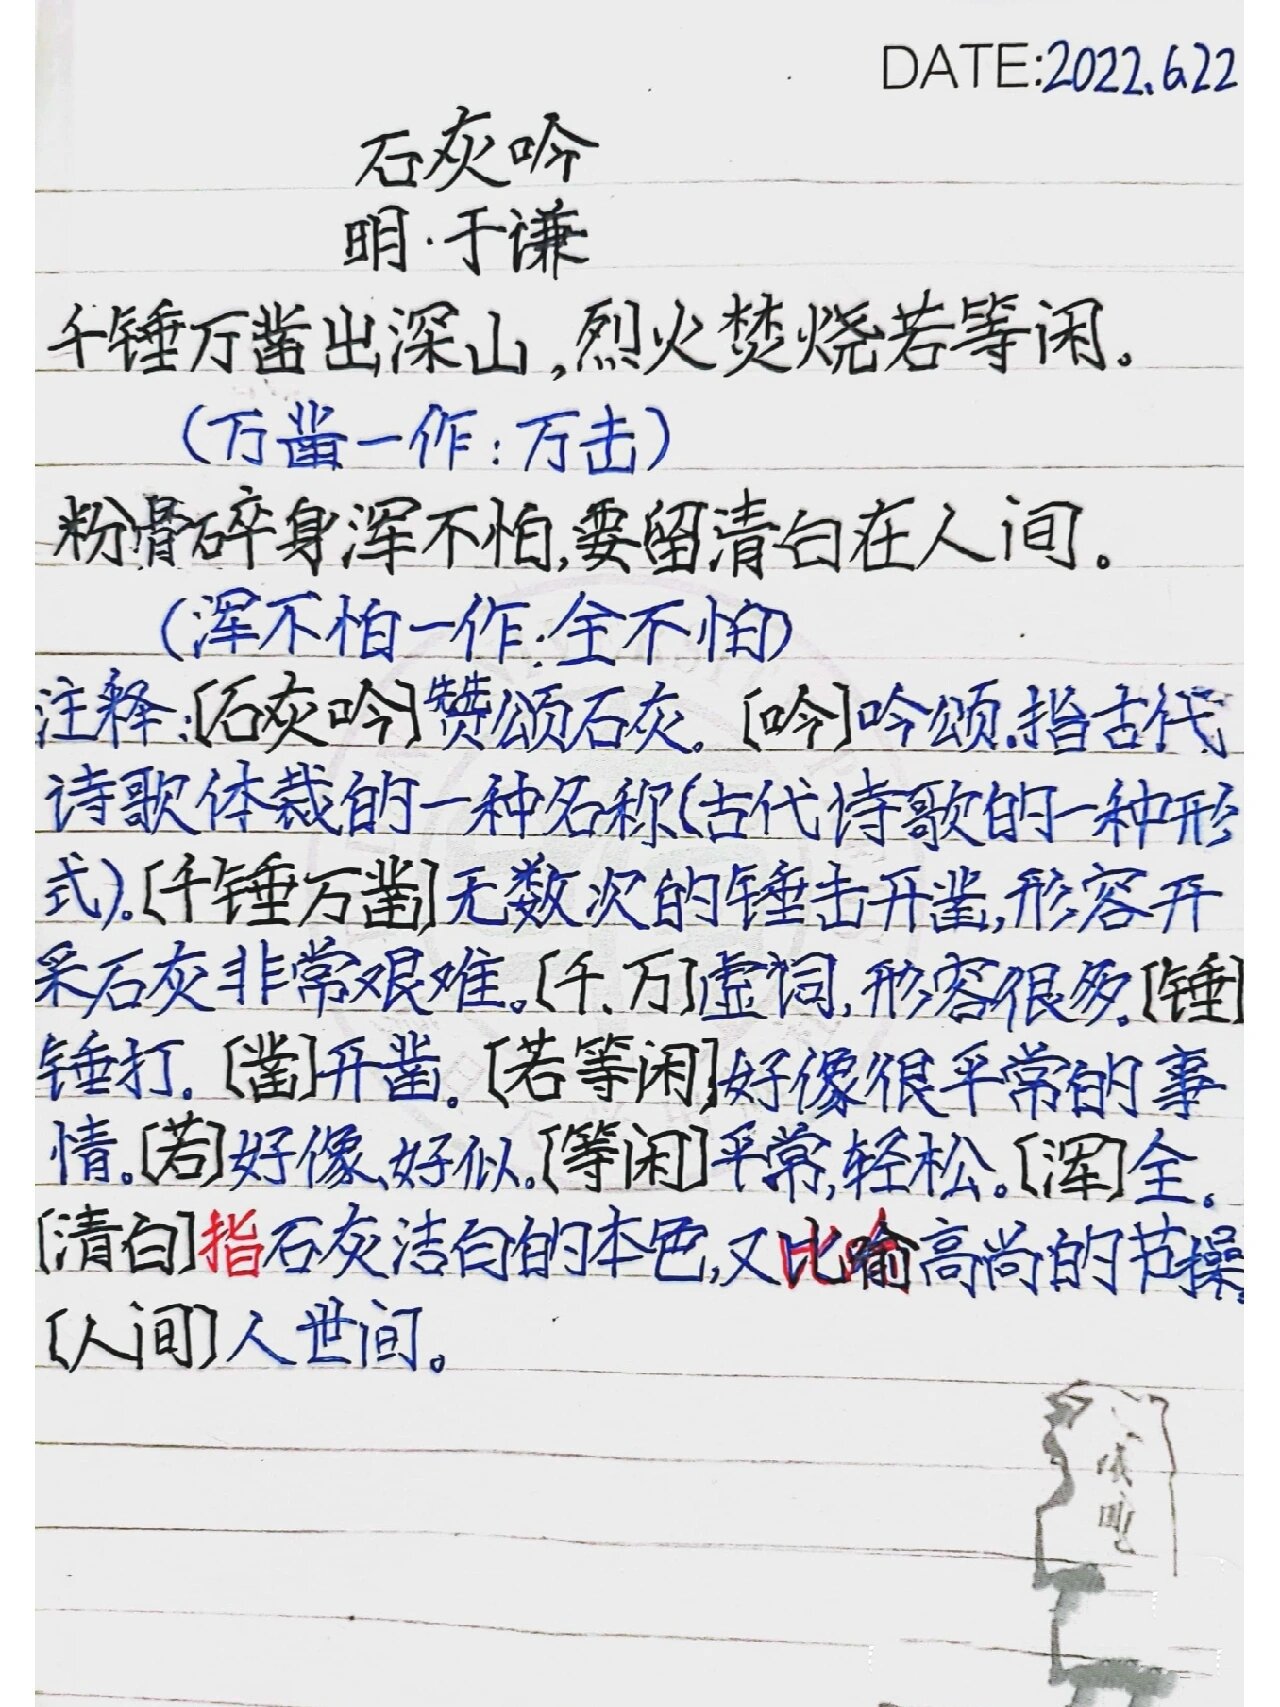 DATE:2022.6.22
石灰吟
明·于谦
千锤万凿出深山,烈火焚烧若等闲。
(万凿一作:万击)
粉骨碎身浑不怕,要留清白在人间。
(浑不怕一作:全不怕)
注释:[石灰吟]赞颂石灰。[吟]吟颂.指古代
诗歌体裁的一种名称(古代诗歌的一种形
式)。[千锤万凿]无数次的锤击开凿,形容开
采石灰非常艰难。[千、万]虚词,形容很多。[锤]
锤打。[凿]开凿。[若等闲]好像很平常的事
情。[若]好像、好似。[等闲]平常,轻松。[浑]全。
[清白]指石灰洁白的本色,又比喻高尚的节操。
[人间]人世间。